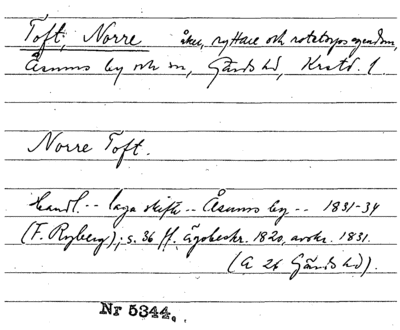 Toft, Norre åker, ryttare och rotetorps egendom,
Åsums by och sn, Gärds hd, Krstd. l.
Norre Toft.
Handl. -- laga skifte -- Åsums by -- 1831-34
(F. Ryberg); s. 36 ff. Ägobeskr. 1820, avskr. 1831.
(A 26 Gärds hd).
Nr 5344.